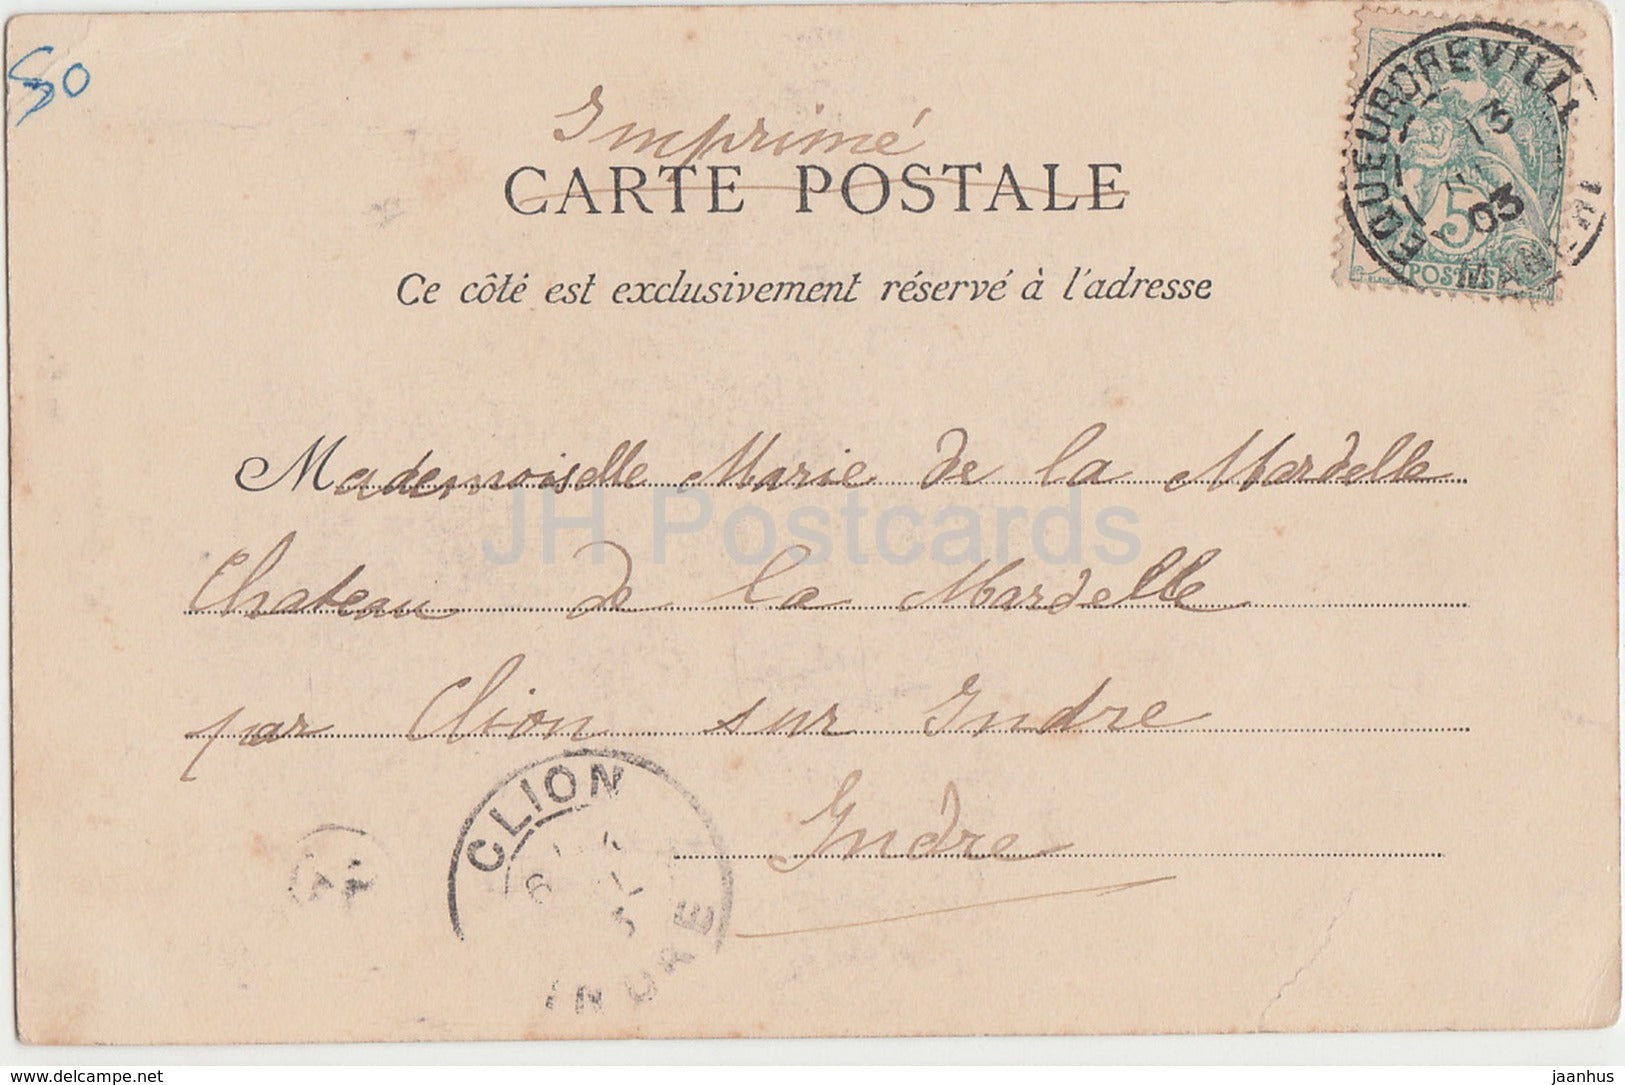 50
Imprimé
CARTE POSTALE
Ce côté est exclusivement réservé à l'adresse
EQUEURDREVILLE
03
5
POSTES
MANCHE
Mademoiselle Marie de la Mardelle
JH Postcards
Chateau de la Mardelle
par Clion sur Indre
Indre
CLION
INDRE
delcampe.net
jaanhus